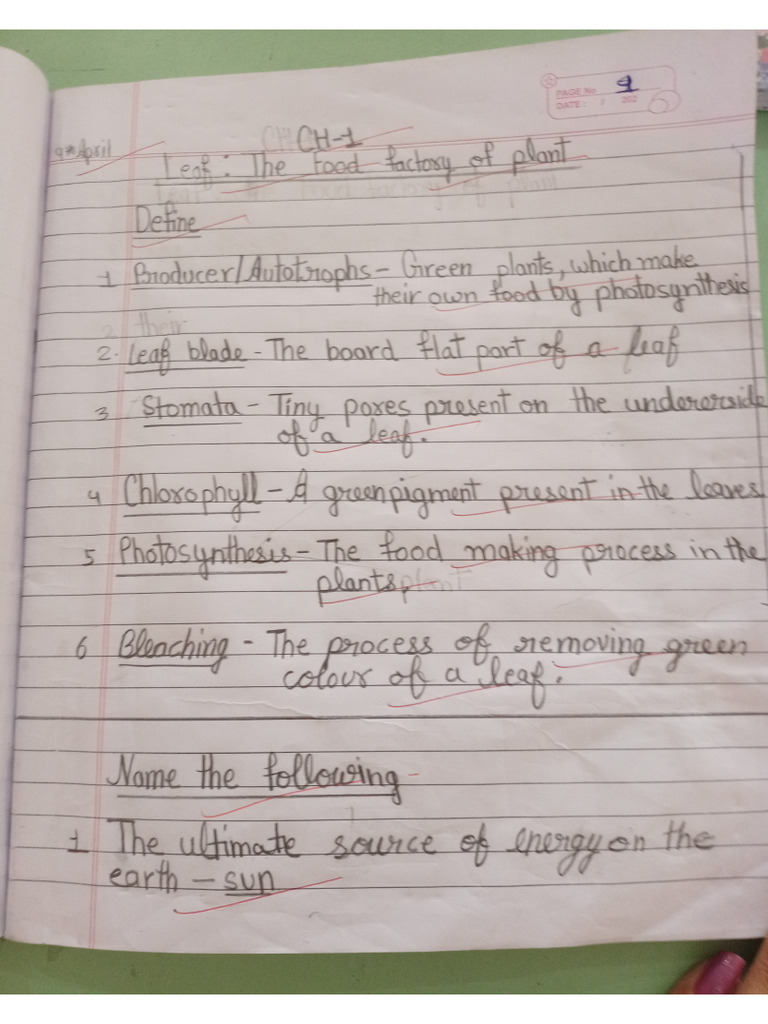 PAGE No 9
DATE: / 202
CH-1
9th April
Leaf: The Food factory of plant
Define
1 Producer/Autotrophs - Green plants, which make
their own food by photosynthesis
2. Leaf blade - The board flat part of a leaf
3 Stomata - Tiny pores present on the undererside
of a leaf.
4 Chlorophyll - A green pigment present in the leaves
5 Photosynthesis - The food making process in the
plants.
6 Bleaching - The process of removing green
colour of a leaf.
Name the following
1 The ultimate source of energy on the
earth - sun